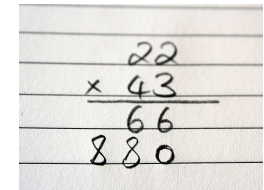 22
× 43
66
880